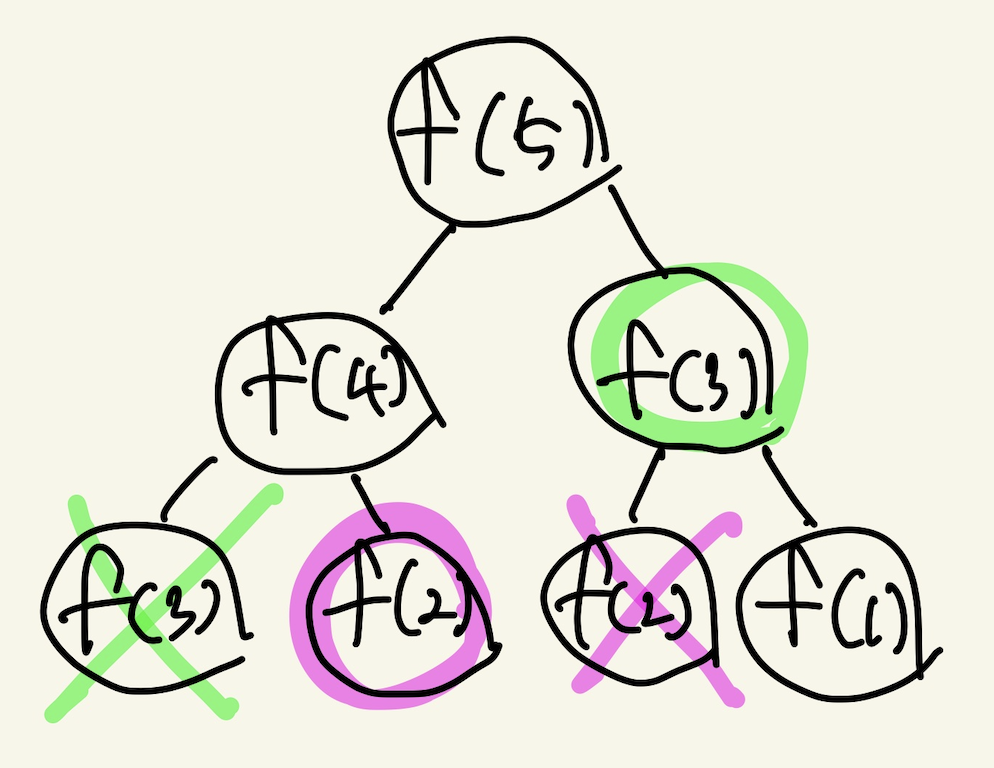 f(5)
f(4) f(3)
f(3) f(2) f(2) f(1)